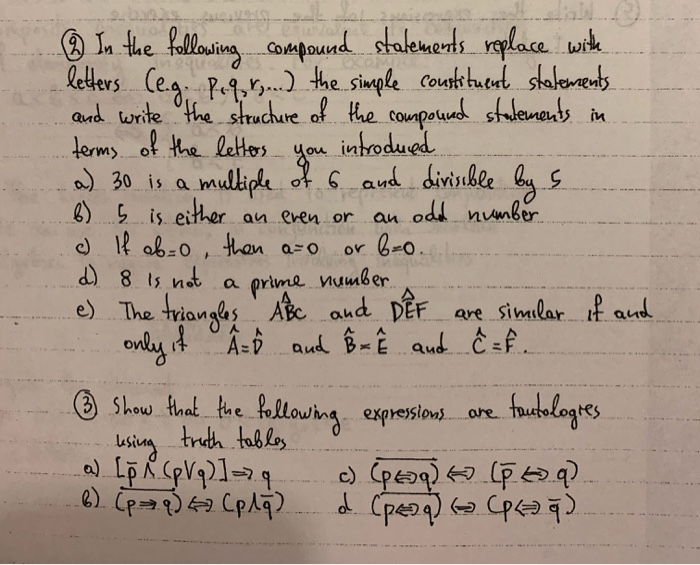 ② In the following compound statements replace with
letters (e.g. p,q,r,...) the simple constituent statements
and write the structure of the compound statements in
terms of the letters you introduced
a) 30 is a multiple of 6 and divisible by 5
b) 5 is either an even or an odd number
c) If ab=0, then a=0 or b=0.
d) 8 is not a prime number
e) The triangles AB̂C and DÊF are similar if and
only if Â=D̂ and B̂=Ê and Ĉ=F̂.
③ Show that the following expressions are tautologies
using truth tables
a) [p̄ ∧ (p∨q)] ⇒ q c) (p̅⇔̅q̅) ⇔ (p̄ ⇔ q)
b) (p̅⇒̅q̅) ⇔ (p∧q̄) d (p̅⇔̅q̅) ⇔ (p⇔ q̄)